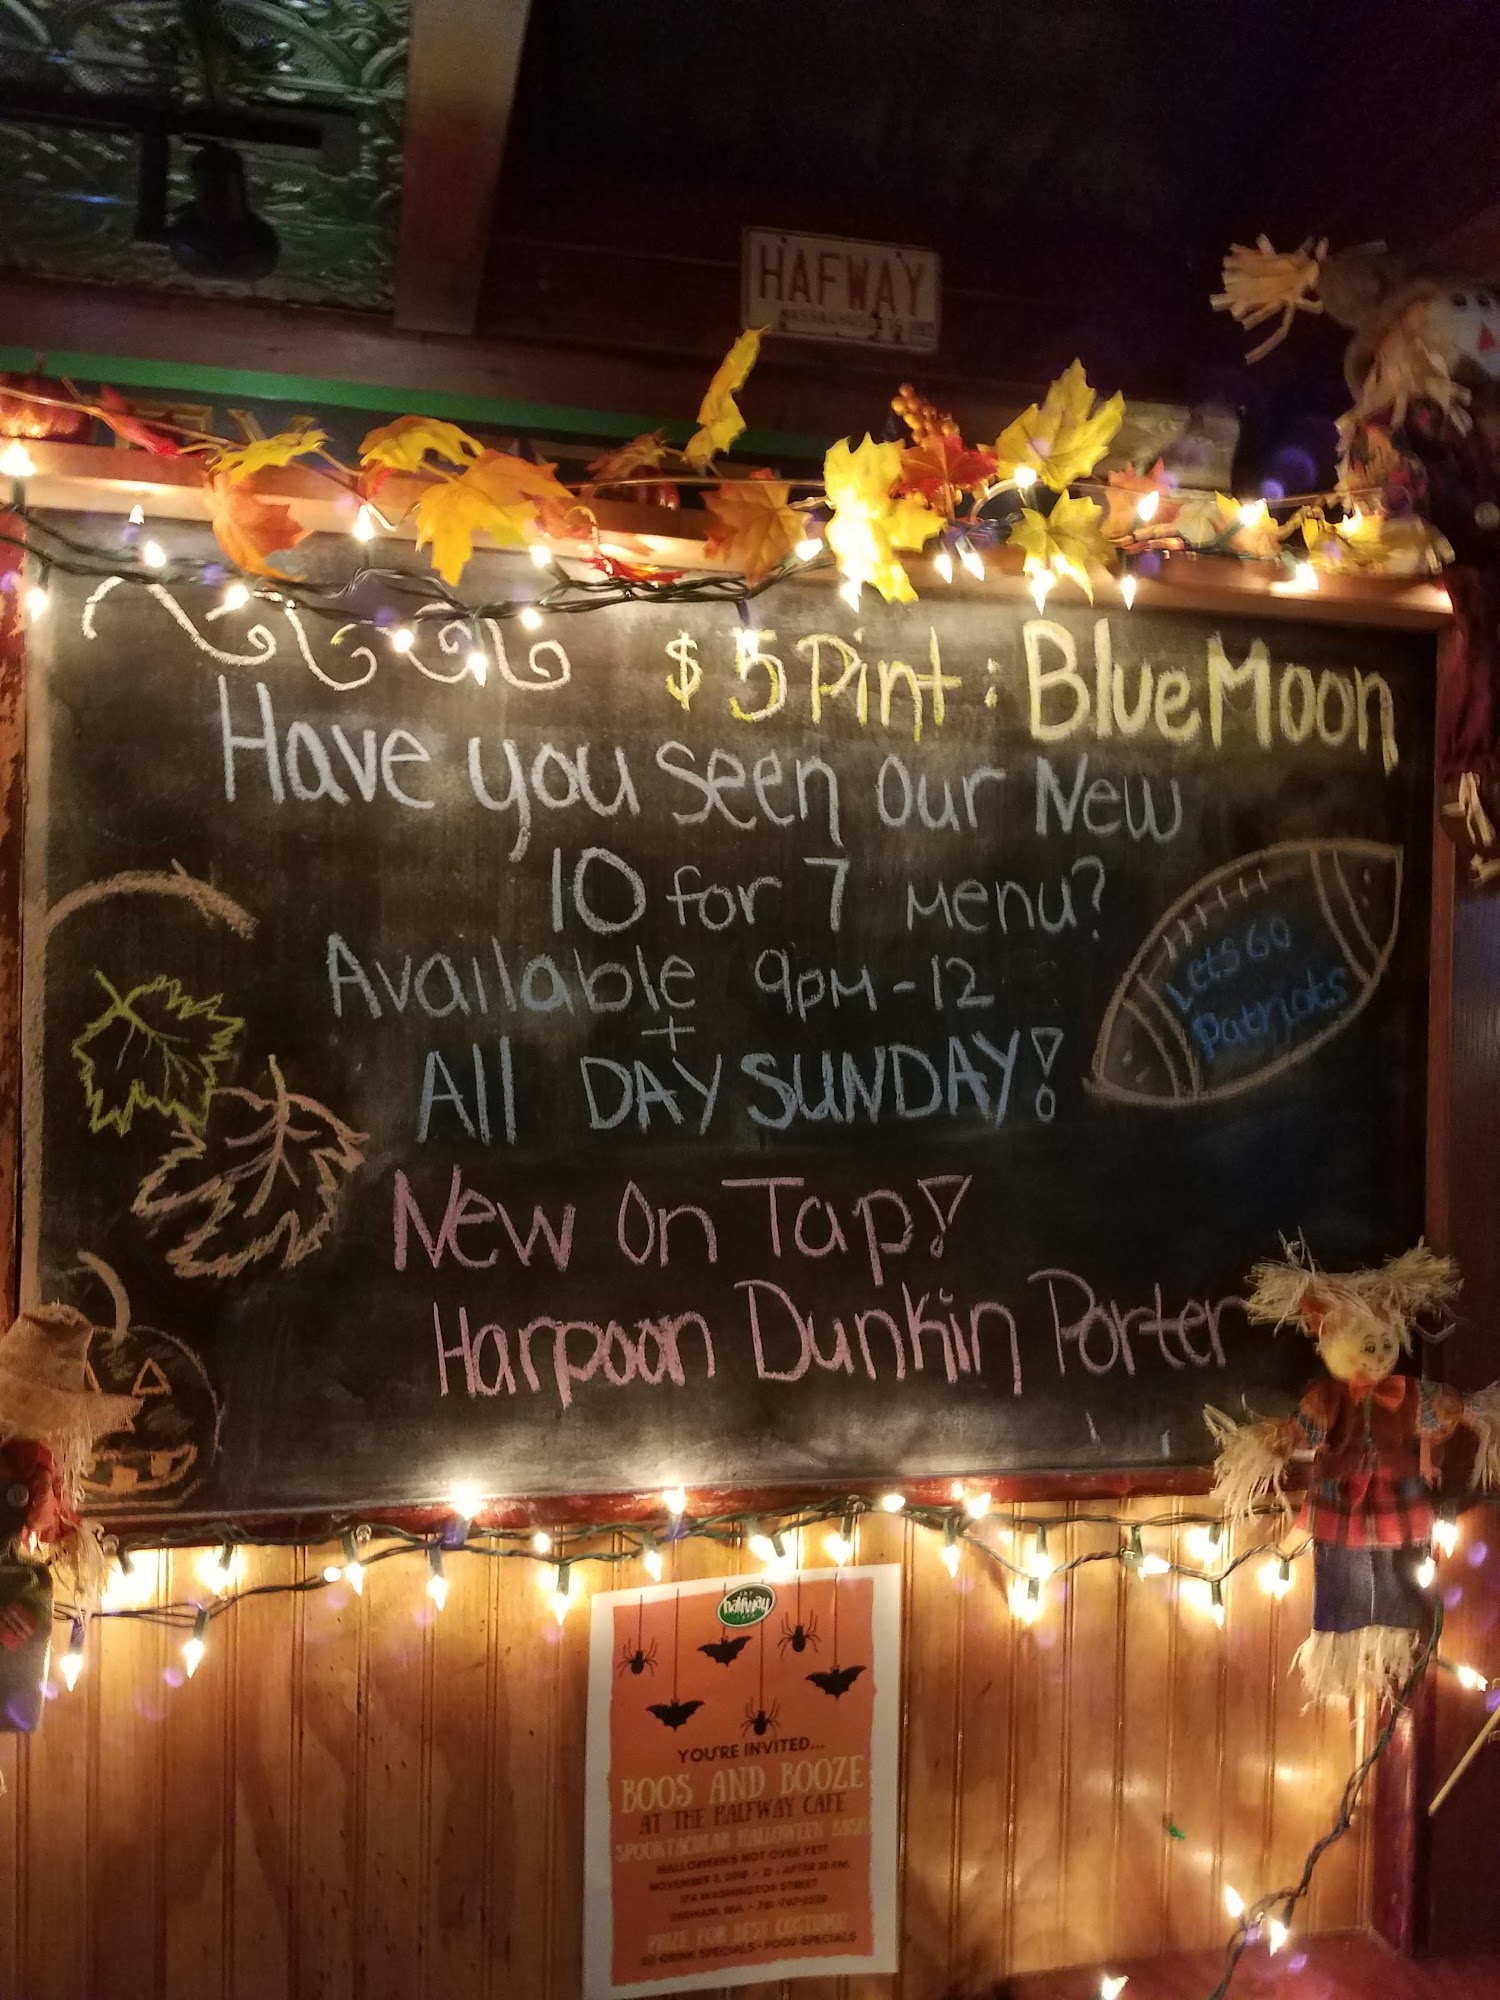 HAFWAY
$5 Pint: Blue Moon
Have you seen our New
10 for 7 Menu?
Available 9pm-12
+
All DAY SUNDAY!
Lets Go
Patriots
New On Tap!
Harpoon Dunkin Porter
the
halfway
cafe
YOU'RE INVITED...
BOOS AND BOOZE
AT THE HALFWAY CAFE
SPOOKTACULAR HALLOWEEN BASH
HALLOWEEN'S NOT OVER YET!
NOVEMBER 3, 2018 - AFTER 10 PM
174 WASHINGTON STREET
DEDHAM, MA -
PRIZE FOR BEST COSTUME!
DRINK SPECIALS - FOOD SPECIALS